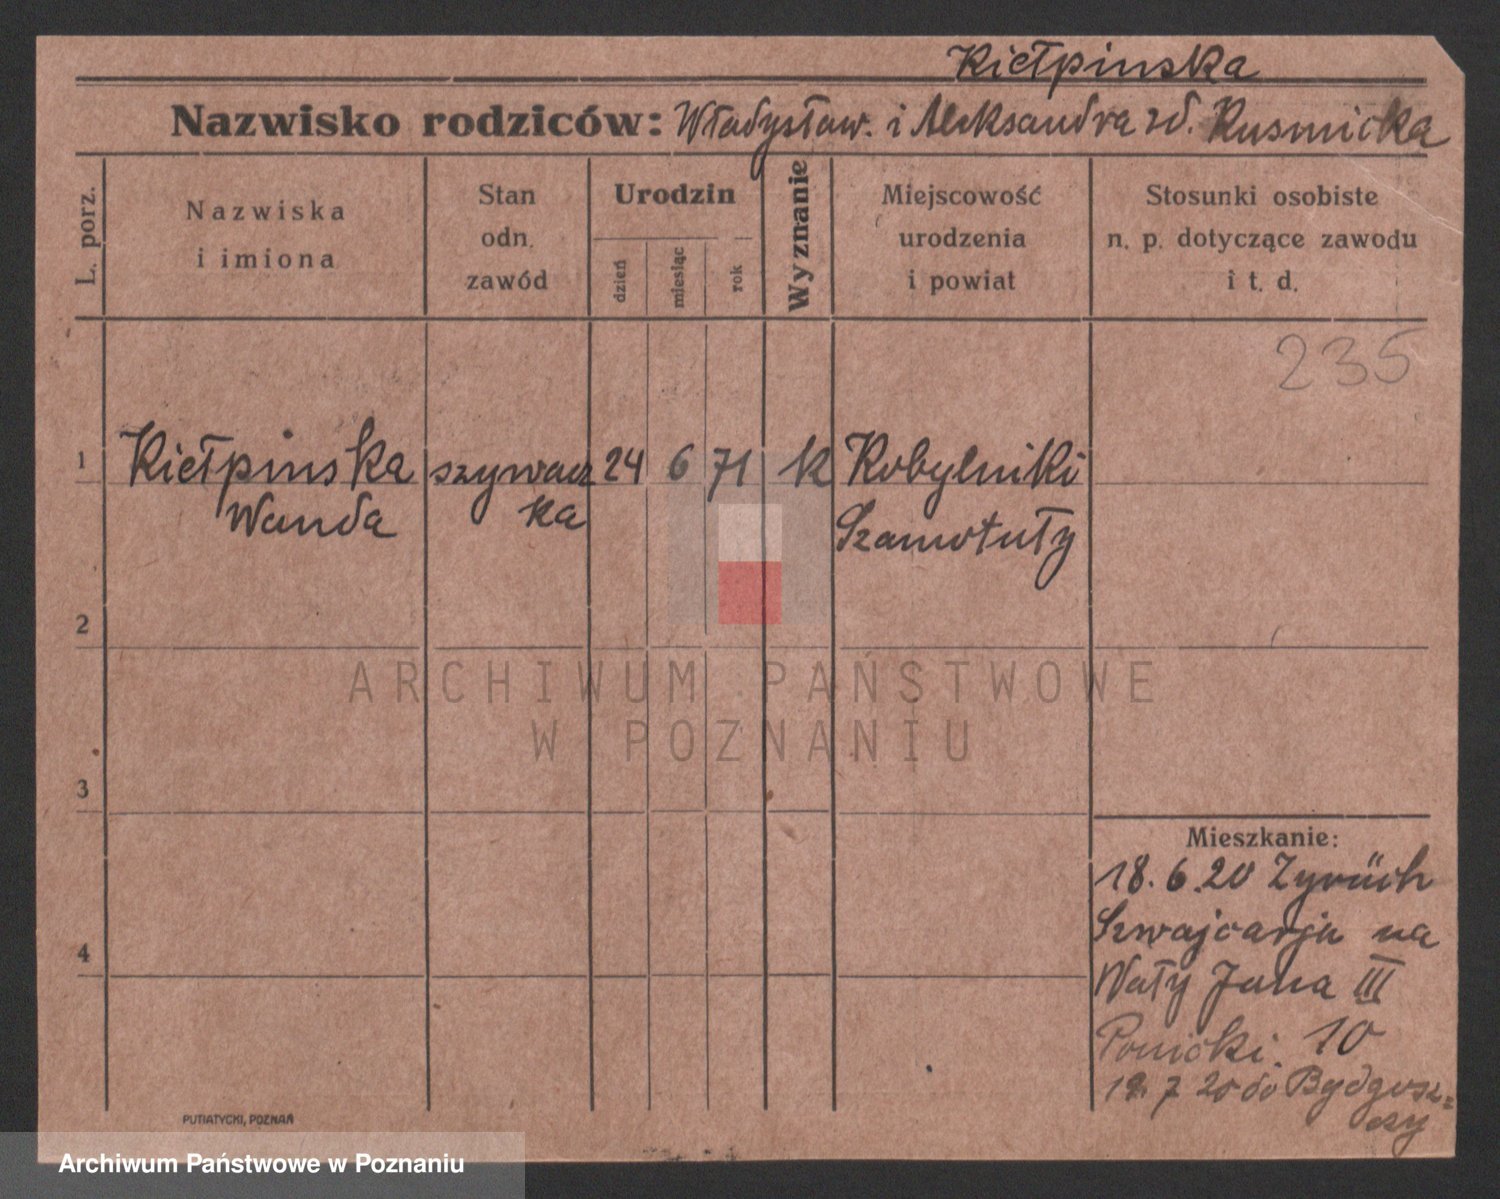 Kiełpinska
Nazwisko rodziców: Władysław. i Aleksandra zd. Kusmicka
L. porz.
Nazwiska
i imiona
Stan
odn.
zawód
Urodzin
dzień
miesiąc
rok
Wyznanie
Miejscowość
urodzenia
i powiat
Stosunki osobiste
n. p. dotyczące zawodu
i t. d.
235
1 Kiełpinska szywacz 24 6 71 k Kobylniki
Wanda ka Szamotuły
2
ARCHIWUM PAŃSTWOWE
W POZNANIU
3
Mieszkanie:
18. 6. 20 Zyrüch
Szwajcarja na
4
Wały Jana III
10
19. 7 20 do Bydgosz=
czy
PUTIATYCKI, POZNAŃ
Archiwum Państwowe w Poznaniu